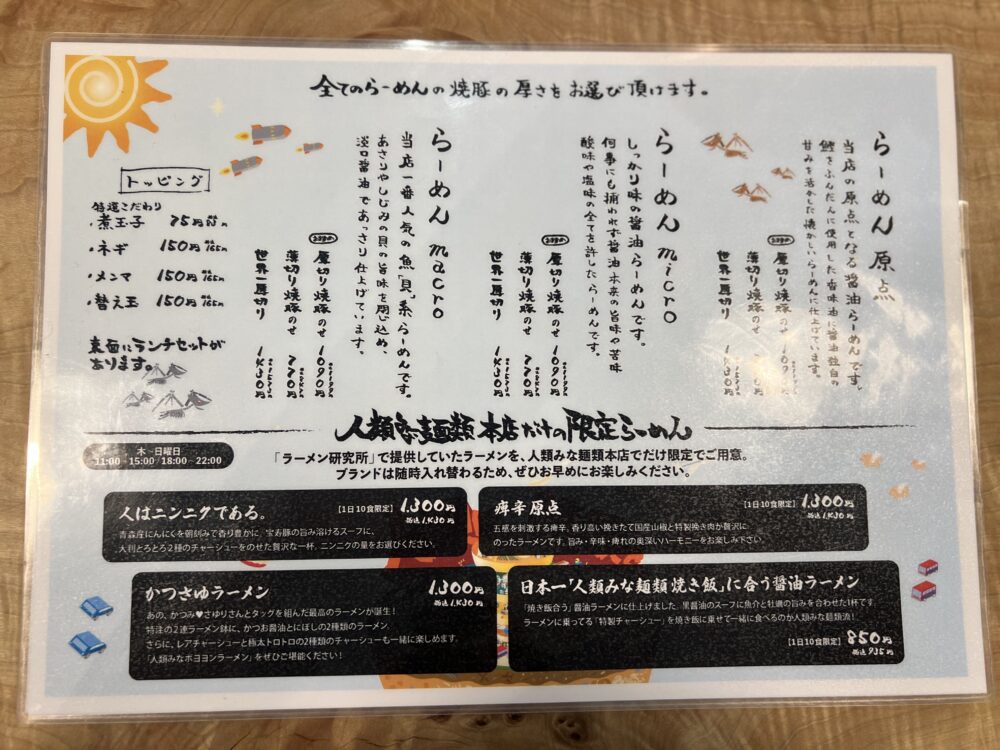 全てのらーめんの焼豚の厚さをお選び頂けます。
らーめん 原点
当店の原点となる醤油らーめんです。
鰹をふんだんに使用した香味油に醤油独自の
甘みを活かした懐かしいらーめんに仕上げています。
厚切り焼豚のせ 1090円
薄切り焼豚のせ
世界一厚切り 1430円
らーめん micro
しっかり味の醤油らーめんです。
何事にも捕われず醤油本来の旨味や苦味
酸味や塩味の全てを許したらーめんです。
厚切り焼豚のせ 1090円
薄切り焼豚のせ 770円
世界一厚切り 1430円
らーめん macro
当店一番人気の魚「貝」系らーめんです。
あさりやしじみの貝の旨味を閉じ込め、
淡口醤油であっさり仕上げています。
厚切り焼豚のせ 1090円
薄切り焼豚のせ 770円
世界一厚切り 1430円
トッピング
特選こだわり
・煮玉子 75円
・ネギ 150円 税込165円
・メンマ 150円 税込165円
・替え玉 150円 税込165円
裏面にランチセットが
あります。
人類みな麺類本店だけの限定らーめん
木~日曜日
11:00~15:00/18:00~22:00
「ラーメン研究所」で提供していたラーメンを、人類みな麺類本店でだけ限定でご用意。
ブランドは随時入れ替わるため、ぜひお早めにお楽しみください。
人はニンニクである。 【1日10食限定】 1,300円
税込1,430円
青森産にんにくを朝刻みで香り豊かに、宝寿豚の旨み溶けるスープに、
大判とろとろ2種のチャーシューをのせた贅沢な一杯。ニンニクの量をお選びください。
痺辛原点 【1日10食限定】 1,300円
税込1,430円
五感を刺激する痺辛、香り高い挽きたて国産山椒と特製挽き肉が贅沢に
のったラーメンです。旨み・辛味・痺れの奥深いハーモニーをお楽しみ下さい。
かつさゆラーメン 1,300円
税込1,430円
あの、かつみ♥さゆりさんとタッグを組んだ最高のラーメンが誕生!
特注の2連ラーメン鉢に、かつお醤油とにぼしの2種類のラーメン。
さらに、レアチャーシューと極太トロトロの2種類のチャーシューも一緒に楽しめます。
「人類みなボヨヨンラーメン」をぜひご堪能ください!
日本一「人類みな麺類焼き飯」に合う醤油ラーメン
「焼き飯合う」醤油ラーメンに仕上げました。黒醤油のスープに魚介と牡蠣の旨みを合わせた1杯です。
ラーメンに乗ってる「特製チャーシュー」を焼き飯に乗せて一緒に食べるのが人類みな麺類流!
【1日10食限定】 850円
税込935円